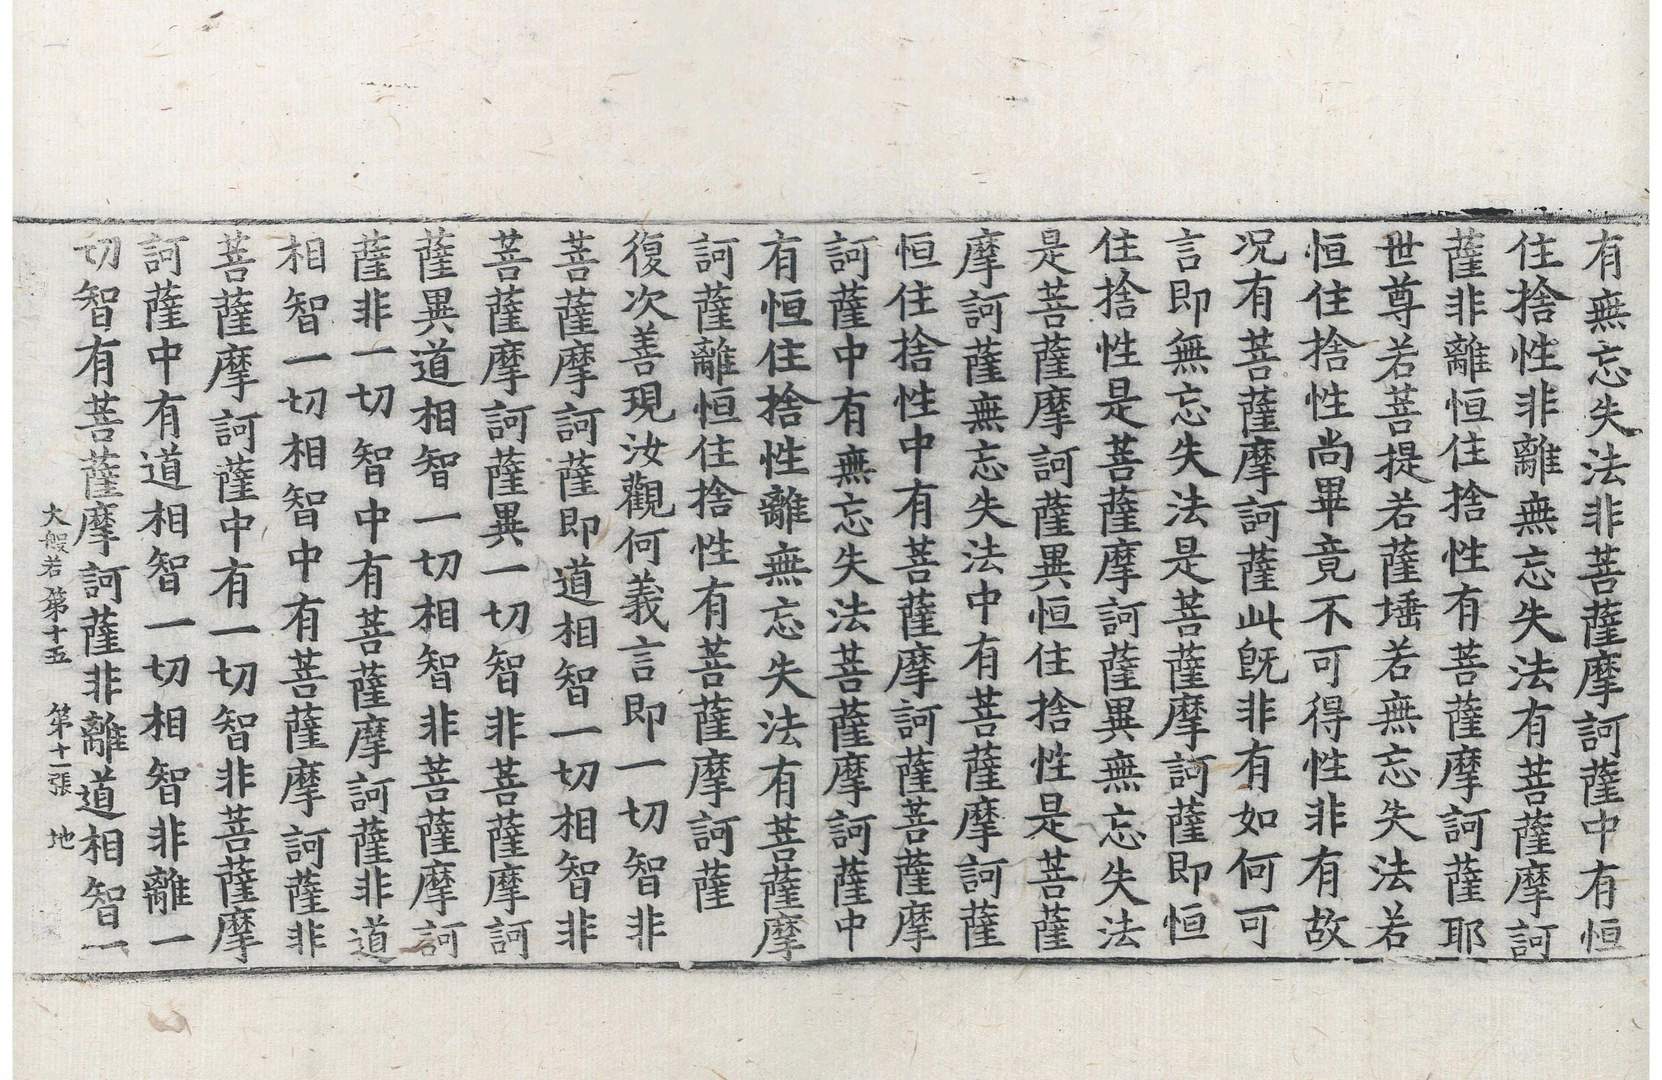 有無忘失法非菩薩摩訶薩中有恒
住捨性非離無忘失法有菩薩摩訶
薩非離恒住捨性有菩薩摩訶薩耶
世尊若菩提若薩埵若無忘失法若
恒住捨性尚畢竟不可得性非有故
况有菩薩摩訶薩此旣非有如何可
言即無忘失法是菩薩摩訶薩即恒
住捨性是菩薩摩訶薩異無忘失法
是菩薩摩訶薩異恒住捨性是菩薩
摩訶薩無忘失法中有菩薩摩訶薩
恒住捨性中有菩薩摩訶薩菩薩摩
訶薩中有無忘失法菩薩摩訶薩中
有恒住捨性離無忘失法有菩薩摩
訶薩離恒住捨性有菩薩摩訶薩
復次善現汝觀何義言即一切智非
菩薩摩訶薩即道相智一切相智非
菩薩摩訶薩異一切智非菩薩摩訶
薩異道相智一切相智非菩薩摩訶
薩非一切智中有菩薩摩訶薩非道
相智一切相智中有菩薩摩訶薩非
菩薩摩訶薩中有一切智非菩薩摩
訶薩中有道相智一切相智非離一
切智有菩薩摩訶薩非離道相智一
大般若第十五 第十一張 地